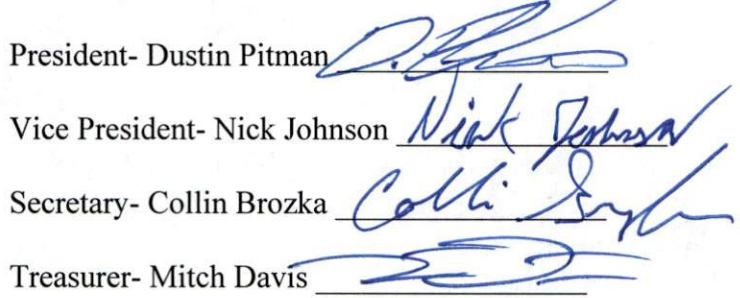 President- Dustin Pitman
Vice President- Nick Johnson Nick Johnson
Secretary- Collin Brozka
Treasurer- Mitch Davis